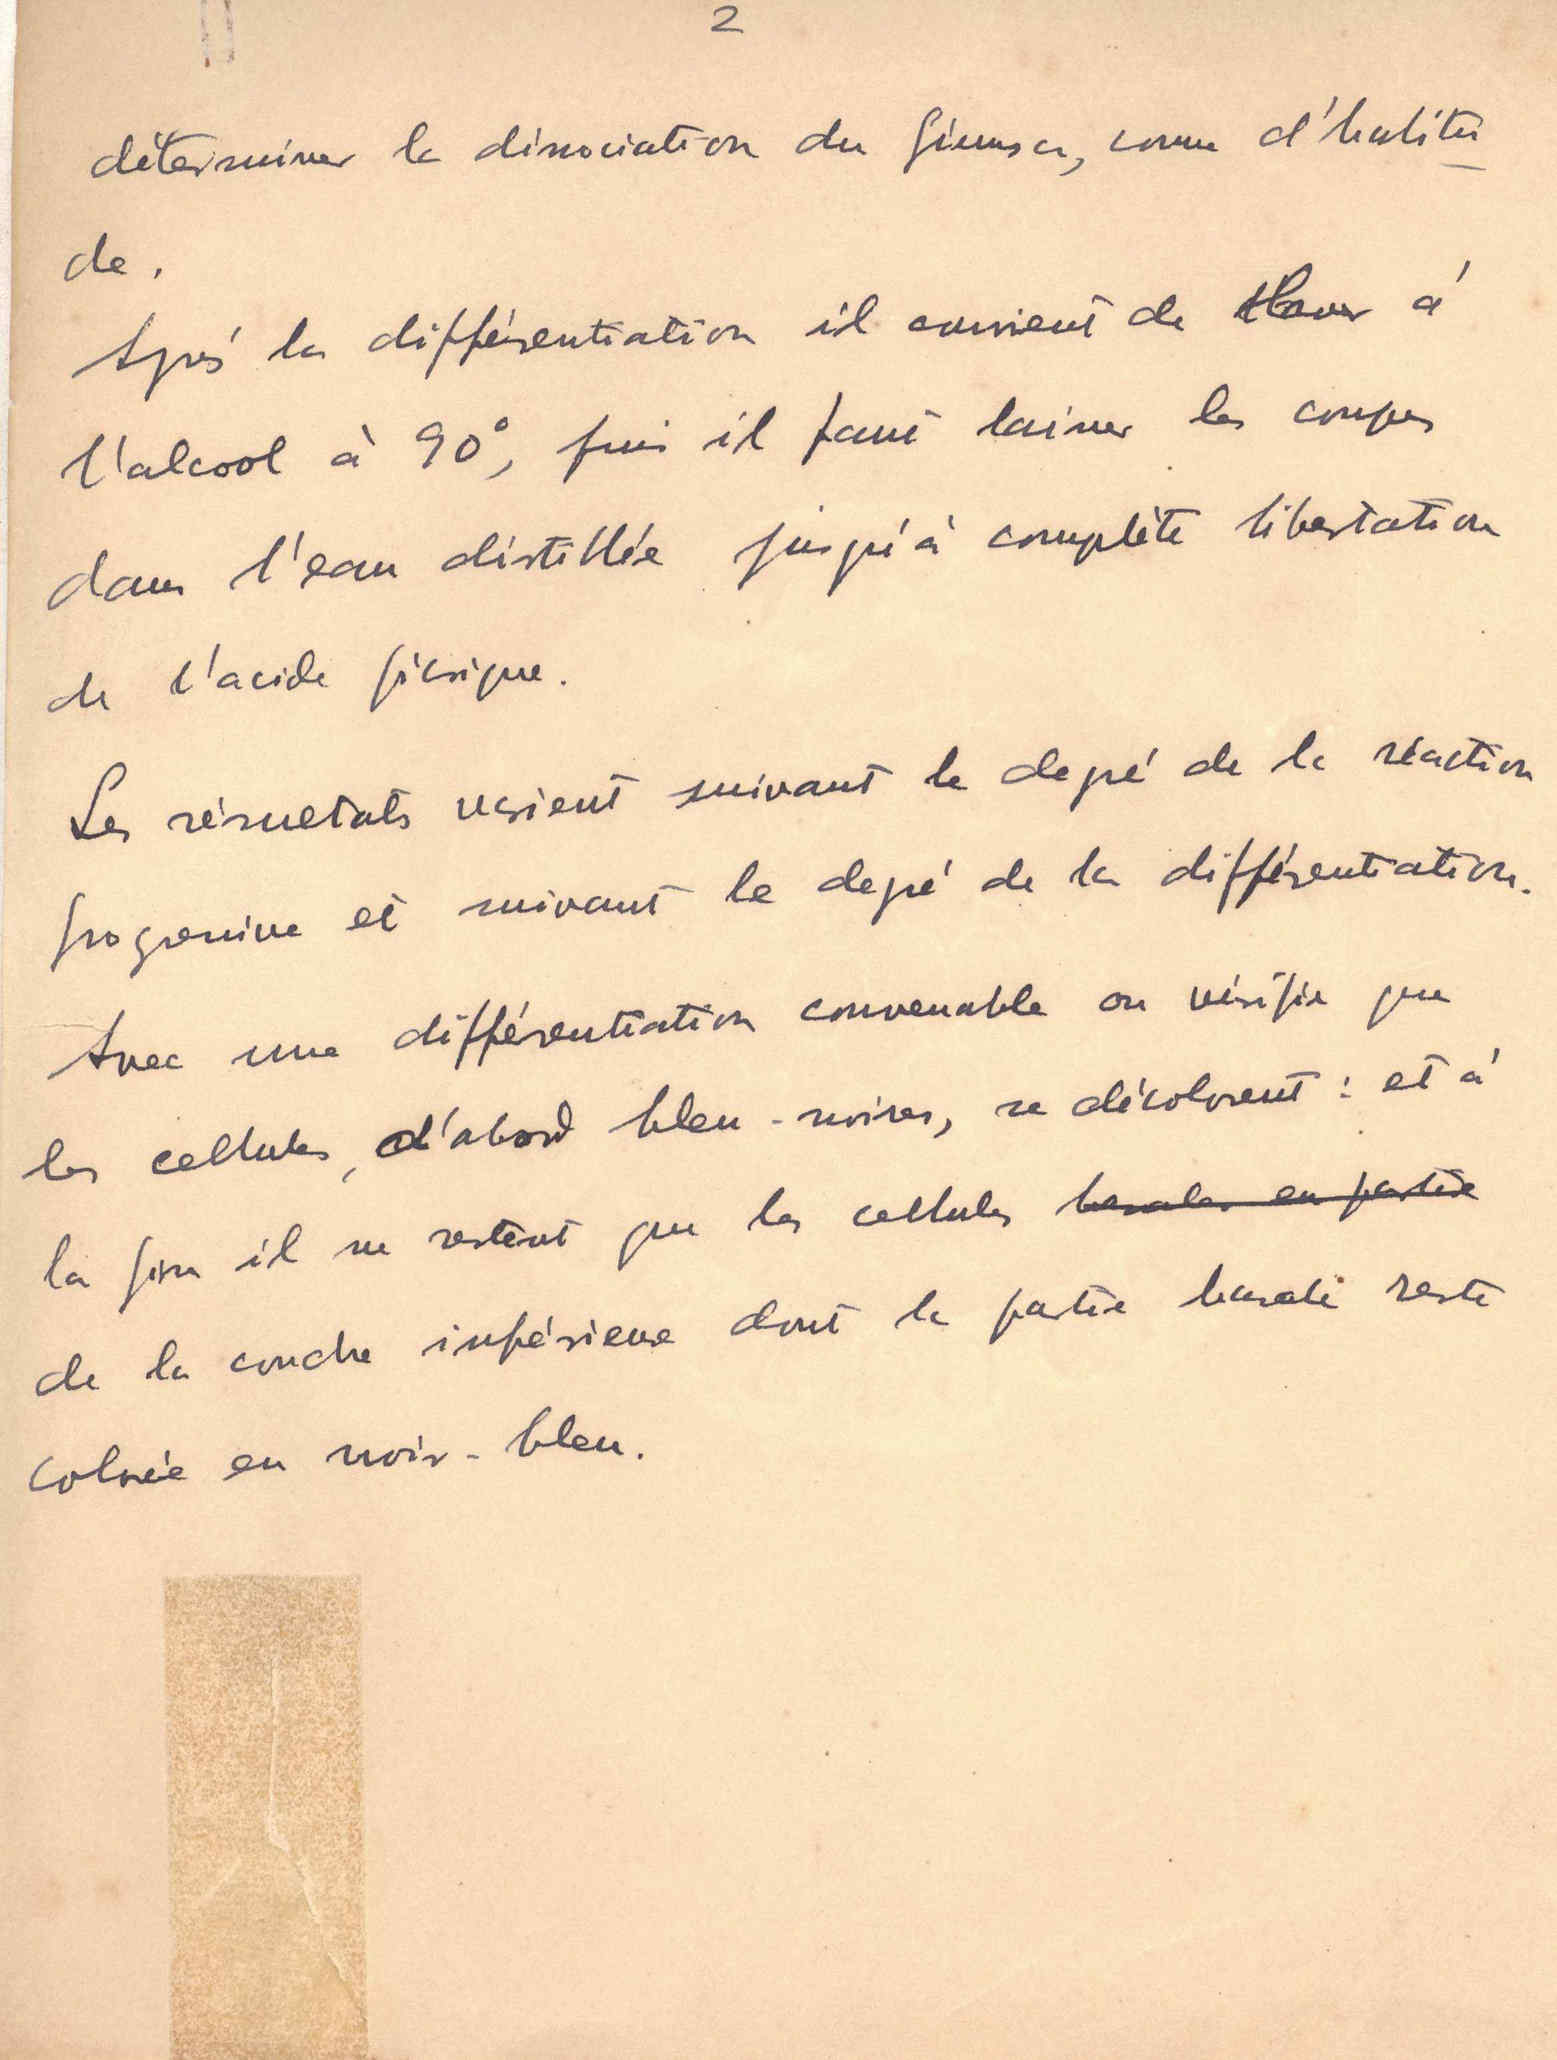 2
déterminer la dissociation du Giemsa, comme d'habitu
de.
Aprés la différentiation il convient de laver á
l'alcool à 90°, puis il faut laisser les coupes
dans l'eau distillée jusqu'à complète libertation
de l'acide picrique.
Les résultats varient suivant le degré de la réaction
progressive et suivant le degré de la différentiation.
Avec une différentiation convenable on vérifie que
les cellules, d'abord bleu-noires, se décolorent : et á
la fin il ne restent que les cellules basales en partie
de la couche inférieure dont la partie basale reste
colorée en noir-bleu.